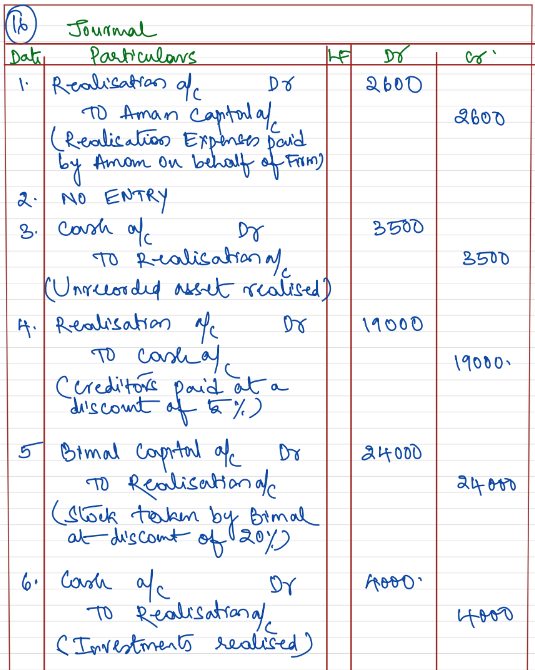 16 Journal
Date Particulars LF Dr Cr.
1. Realisation a/c Dr 2600
TO Aman Capital a/c 2600
(Realisation Expenses paid
by Aman on behalf of Firm)
2. NO ENTRY
3. Cash a/c Dr 3500
TO Realisation a/c 3500
(Unrecorded asset realised)
4. Realisation a/c Dr 19000
TO Cash a/c 19000.
(Creditors paid at a
discount of 5%)
5 Bimal Capital a/c Dr 24000
TO Realisation a/c 24000
(Stock taken by Bimal
at discount of 20%)
6. Cash a/c Dr 4000.
TO Realisation a/c 4000
(Investments realised)